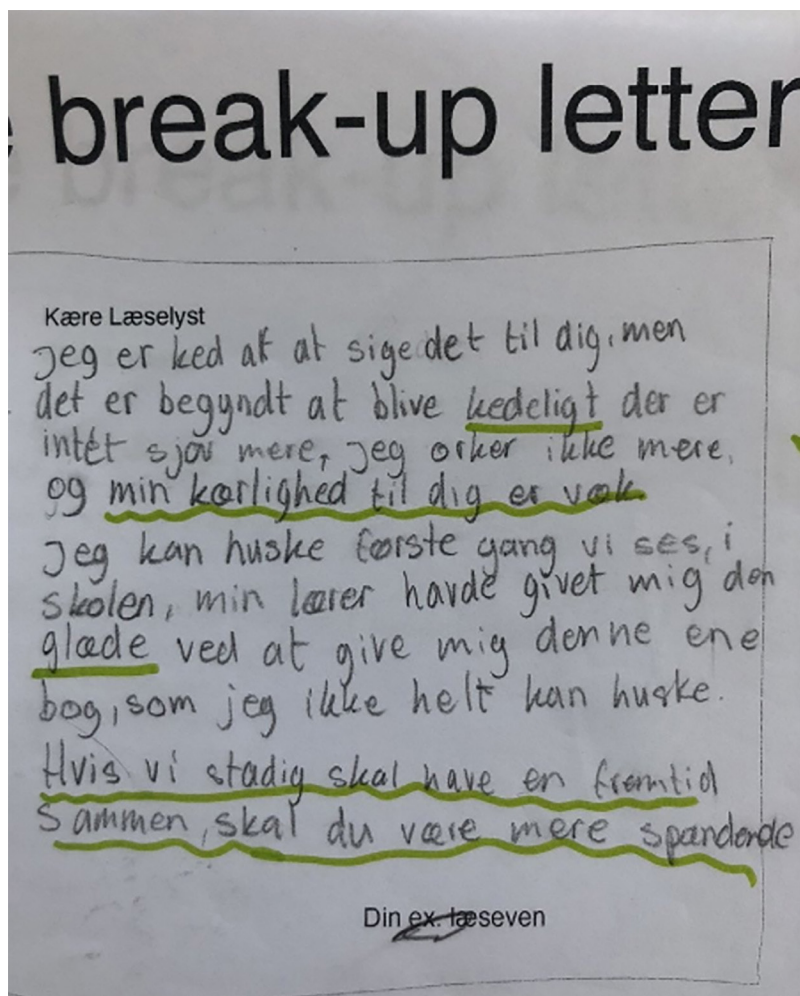 break-up letter
Kære Læselyst
Jeg er ked af at sige det til dig, men
det er begyndt at blive kedeligt der er
intet sjov mere, jeg orker ikke mere,
og min kærlighed til dig er væk.
Jeg kan huske første gang vi ses, i
skolen, min lærer havde givet mig den
glæde ved at give mig denne ene
bog, som jeg ikke helt kan huske.
Hvis vi stadig skal have en fremtid
sammen, skal du være mere spændende
Din ex. læseven